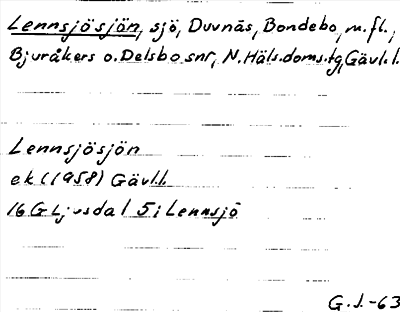 Lennsjösjön, sjö, Duvnäs, Bondebo, m.fl.,
Bjuråkers o. Delsbo snr, N. Häls. doms.tg, Gävl.l.
Lennsjösjön
ek (1958) Gävl.l.
16 G Ljusdal 5 i Lennsjö
G.J.-63